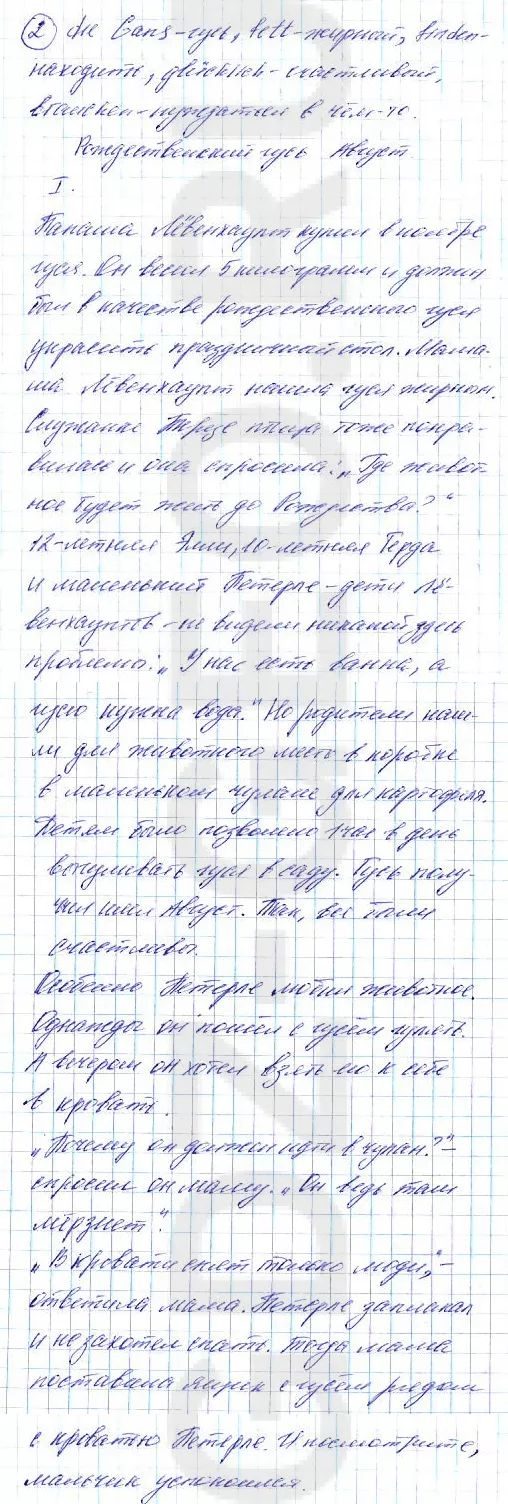 ② die Gans-гусь, fett-жирный, finden-
находить, glücklich-счастливый,
brauchen-нуждаться в чём-то.
Рождественский гусь Август.
I.
Папаша Лёвенхаупт купил в ноябре
гуся. Он весил 5 килограмм и должен
был в качестве рождественского гуся
украсить праздничный стол. Мама-
ша Лёвенхаупт нашла гуся жирным.
Служанке Терезе птица тоже понра-
вилась и она спросила: „Где живот-
ное будет жить до Рождества?“
12-летняя Элли, 10-летняя Герда
и маленький Петерле - дети Лё-
венхауптов - не видели никакой здесь
проблемы: „У нас есть ванна, а
гусю нужна вода.“ Но родители наш-
ли для животного место в коробке
в маленьком чулане для картофеля.
Детям было позволено 1 час в день
выгуливать гуся в саду. Гусь полу-
чил имя Август. Так, все были
счастливы.
Особенно Петерле любил животное.
Однажды он пошёл с гусём гулять.
А вечером он хотел взять его к себе
в кровать.
„Почему он должен идти в чулан?“ -
спросил он маму. „Он ведь там
мёрзнет“.
„В кровати спят только люди“, -
ответила мама. Петерле заплакал
и не захотел спать. Тогда мама
поставила ящик с гусём рядом
с кроватью Петерле. И посмотрите,
мальчик успокоился.